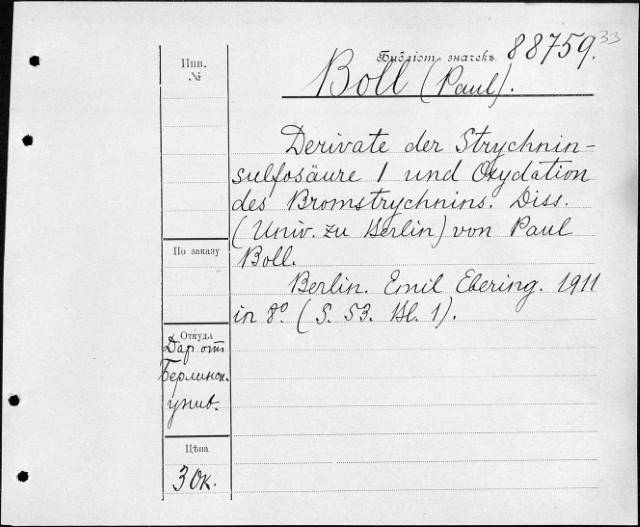 Инв.
№
Библіот. значекъ 88759.33
Boll (Paul).
Derivate der Strychnin-
sulfosäure I und Oxydation
des Bromstrychnins. Diss.
(Univ. zu Berlin) von Paul
Boll.
Berlin. Emil Ebering. 1911
in 8º. (S. 53. Bl. 1).
По заказу
Откуда
Дар отъ
Берлинск.
унив.
Цѣна
30к.